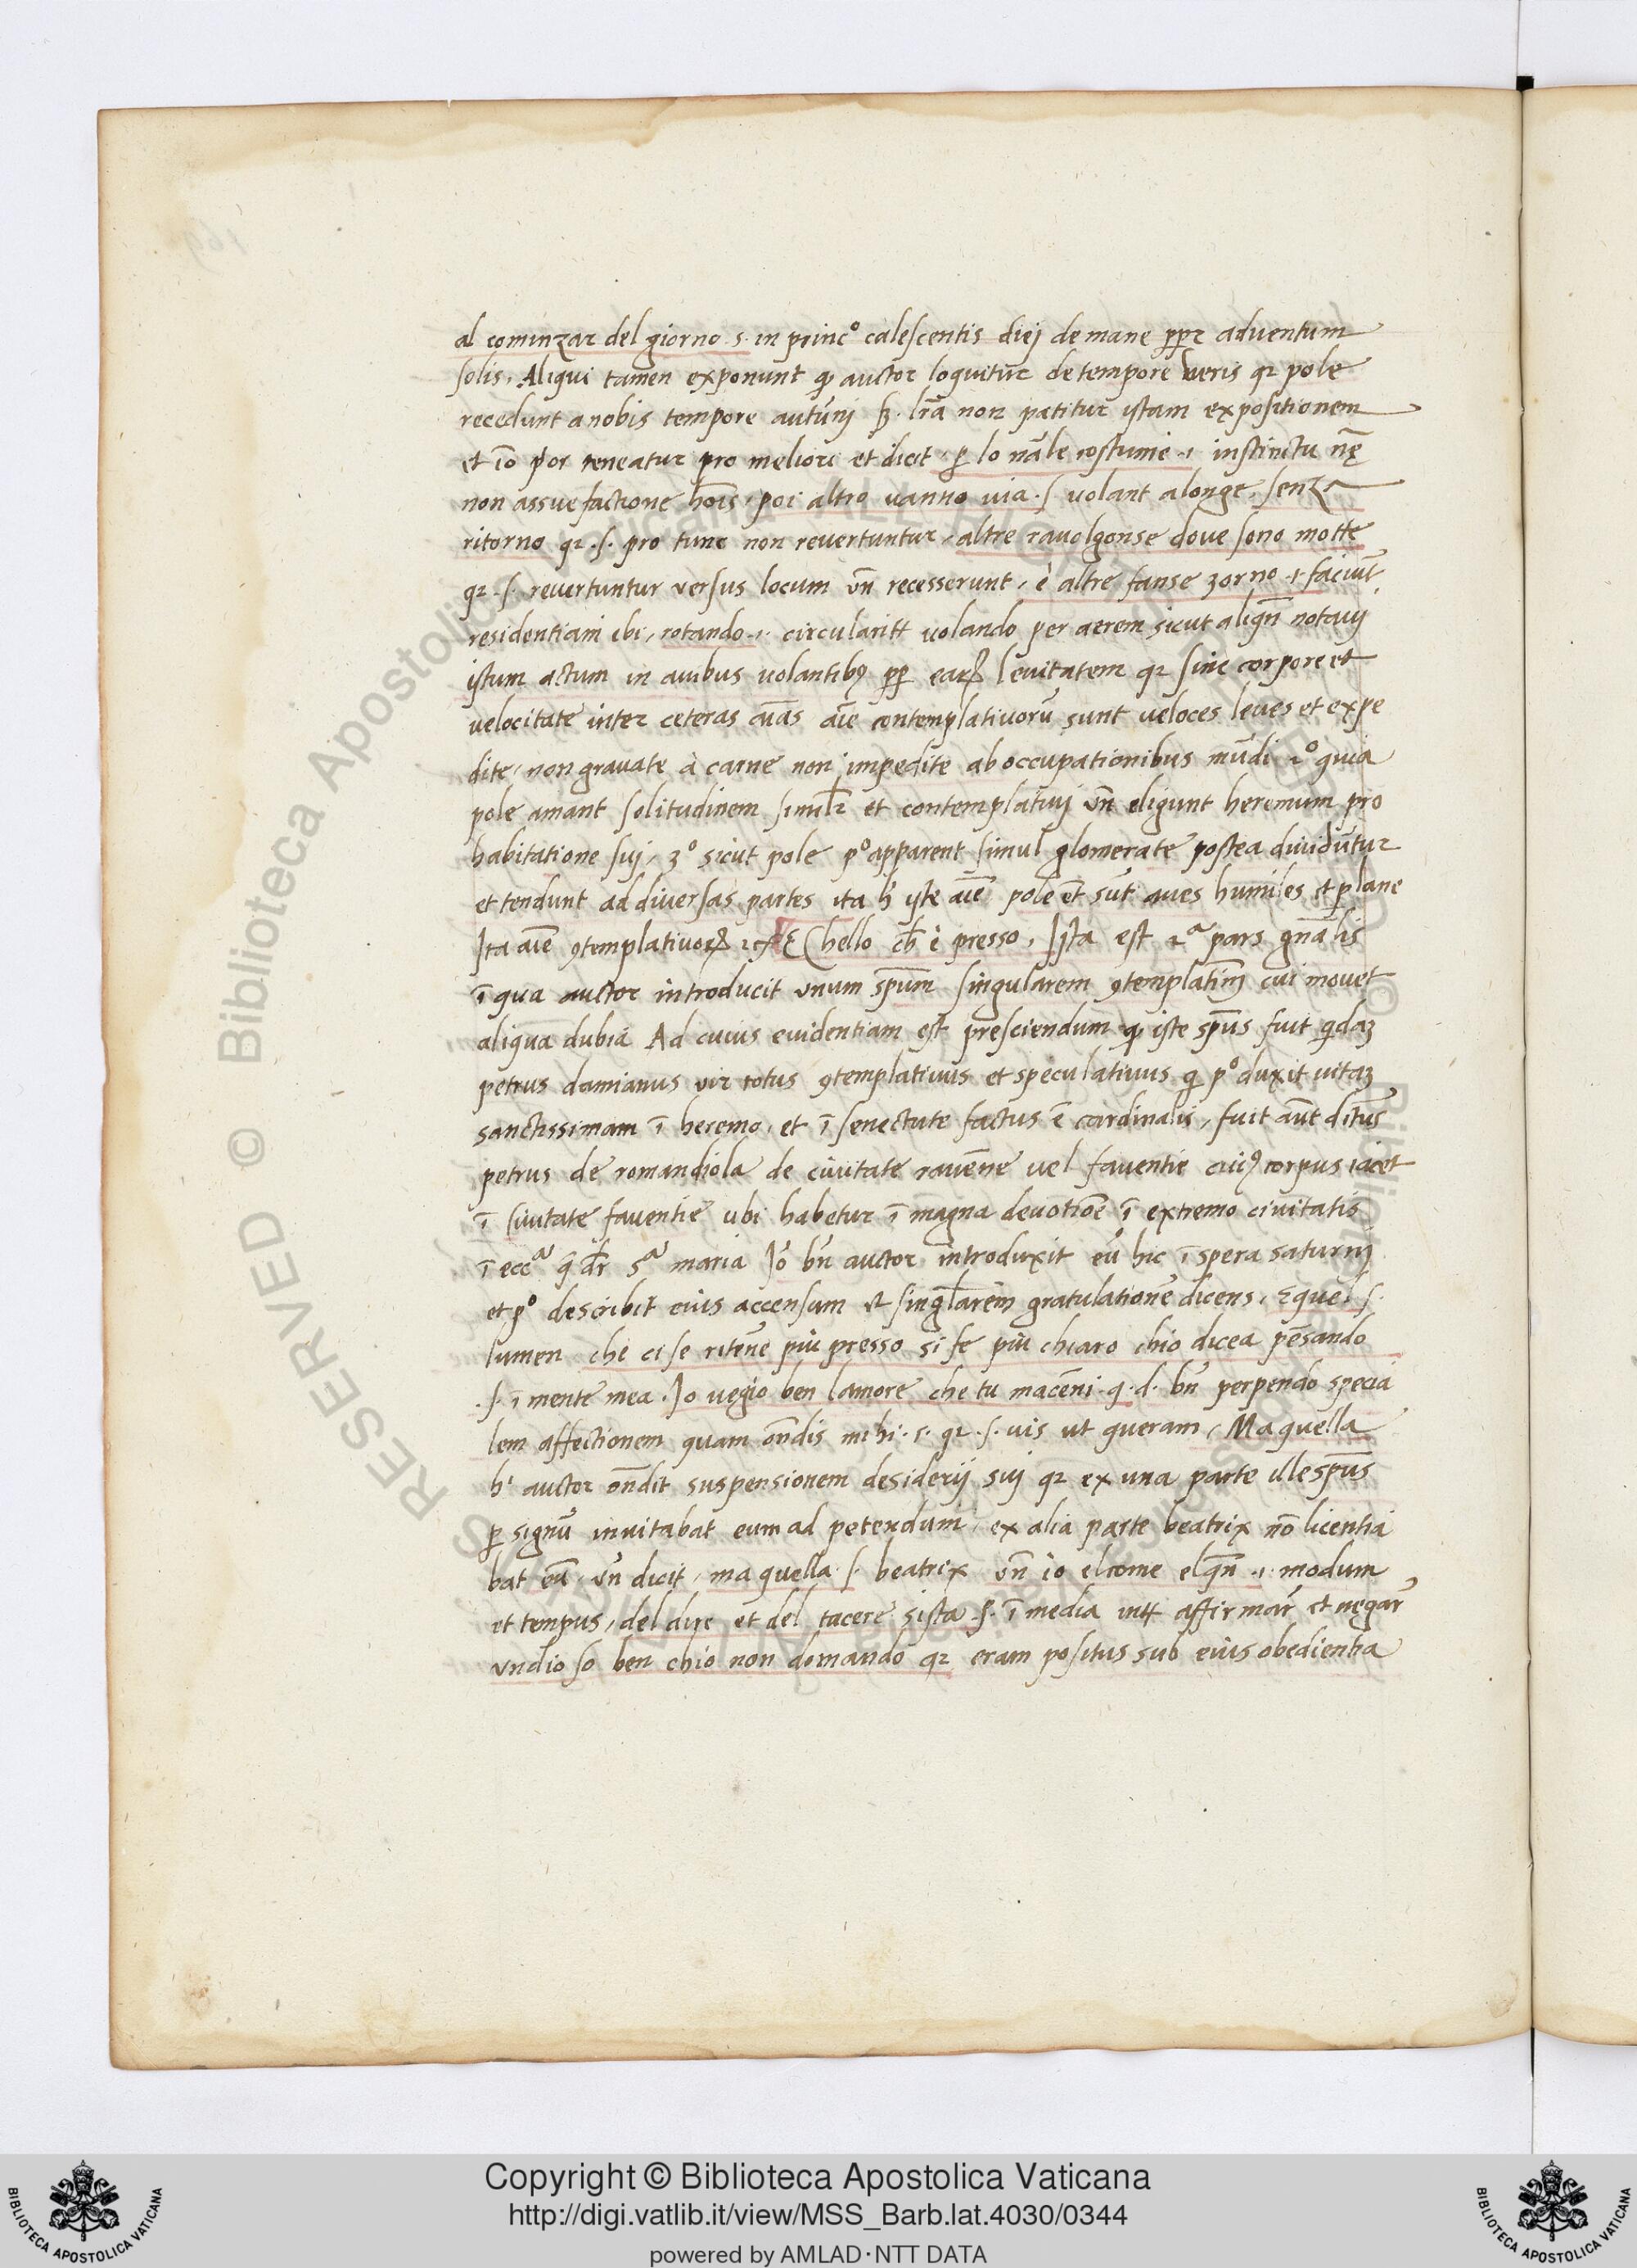 al cominzar del giorno .s. in princº calescentis diej de mane ꝓpr adventum
solis. Aliqui tamen exponunt ꝙ auctor loquitur de tempore veris qr pole
recedunt a nobis tempore autūnj sȝ. lr̄a non patitur ystam expositionem
et iō por teneatur pro meliori et dicit. ꝑ lo nāle costume .i. instinctu nę
non assuefactione hoīs. poi altro vanno via .s. volant alonge. senza
ritorno qr .s. pro tunc non revertuntur, altre ravolgonse dove sono motte
qr .s. revertuntur versus locum vn̄ recesserunt, è altre fanse zorno .i. faciūt
residentiam ibi, rotando .i. circulariter volando per aerem sicut aliqn̄ notavj
ystum actum in avibus volantibꝰ ꝓp eaꝝ levitatem qr sine corpore et
velocitate inter ceteras aīas aīe contemplativorū sunt veloces leves et expe
dite, non gravate à carne non impedite ab occupationibus mūdi 2º quia
pole amant solitudinem simlr et contemplativj vn̄ eligunt heremum pro
habitatione suj, 3º sicut pole pº apparent simul glomerate postea dividūtur
et tendunt ad diversas partes ita h̄ yste aīe pole et̄ sūt aves humiles et plane
Ita aīe ꝯtemplativoꝝ 2cª E Chello ch̄ è presso. Ista est 2ª pars gn̄alis
ī qua auctor introducit vnum spūm singularem ꝯtemplatīm cui movet
aliqua dubia Ad cuius evidentiam est presciendum ꝙ iste spūs fuit qdaȝ
petrus damianus vir totus ꝯtemplativus et speculativus q pº duxit vitaȝ
sanctissimam ī heremo, et ī senectute factus ē cardinalis, fuit aūt dītus
petrus de romandiola de civitate ravenne vel faventie cuiꝰ corpus iacet
ī sivitate faventie vbi habetur ī magna devotiōe ī extremo civitatis
ī eccª q dr̄ Sª maria Iō bn̄ auctor introduxit eū hic ī spera saturnj
et pº describit eius accensum et singlarem gratulationē dicens. E que .s.
lumen che ci se ritēne più presso si fe più chiaro chio dicea pēsando
.s. ī mente mea. Io vegio ben lamore che tu macēni .q.d. bn̄ perpendo specia
lem affectionem quam ōndis mihi .s. qr .s. vis ut queram, Ma quella
hⁱ auctor ōndit suspensionem desiderij suj qr ex una parte ille spūs
ꝑ signū invitabat eum ad petendum, ex alia parte beatrix nō licentia
bat eū, vn̄ dicit, ma quella .s. beatrix vn̄ io elcome elqn̄ .i. modum
et tempus, del dire et del tacere sista .s. ī media int̄ affirmar̄ et negar̄
vndio so ben chio non domando qr eram positus sub eius obedientia
Copyright © Biblioteca Apostolica Vaticana
http://digi.vatlib.it/view/MSS_Barb.lat.4030/0344
powered by AMLAD·NTT DATA
BIBLIOTECA APOSTOLICA VATICANA
BIBLIOTECA APOSTOLICA VATICANA